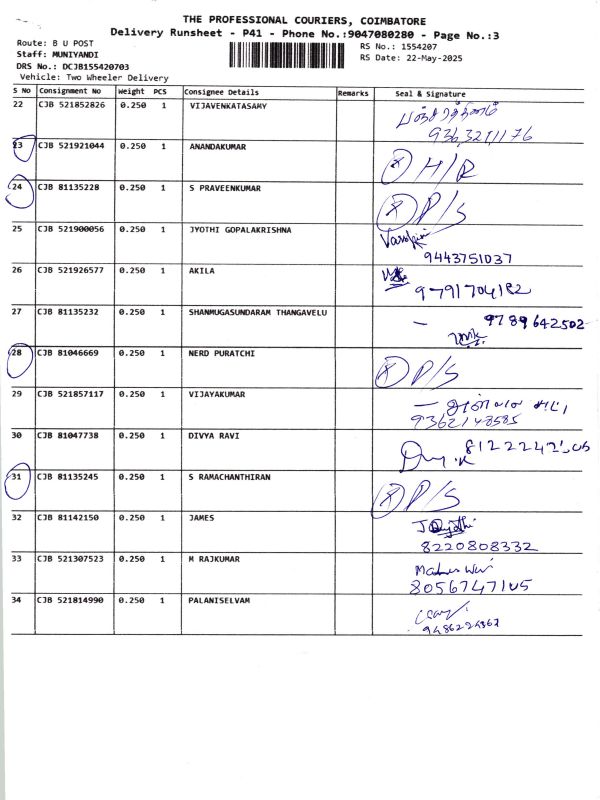 THE PROFESSIONAL COURIERS, COIMBATORE
Delivery Runsheet - P41 - Phone No.:9047080280 - Page No.:3
Route: B U POST
Staff: MUNIYANDI
DRS No.: DCJB155420703
Vehicle: Two Wheeler Delivery
RS No.: 1554207
RS Date: 22-May-2025
S No Consignment No Weight PCS Consignee Details Remarks Seal & Signature
22 CJB 521852826 0.250 1 VIJAYENKATASAMY
23 CJB 521921044 0.250 1 ANANDAKUMAR H/R
24 CJB 81135228 0.250 1 S PRAVEENKUMAR P/S
25 CJB 521900056 0.250 1 JYOTHI GOPALAKRISHNA
9443751037
26 CJB 521926577 0.250 1 AKILA
27 CJB 81135232 0.250 1 SHANMUGASUNDARAM THANGAVELU 9789642502
28 CJB 81046669 0.250 1 NERD PURATCHI P/S
29 CJB 521857117 0.250 1 VIJAYAKUMAR
9362148585
30 CJB 81047738 0.250 1 DIVYA RAVI
31 CJB 81135245 0.250 1 S RAMACHANTHIRAN P/S
32 CJB 81142150 0.250 1 JAMES
8220808332
33 CJB 521307523 0.250 1 M RAJKUMAR
8056747105
34 CJB 521814990 0.250 1 PALANISELVAM